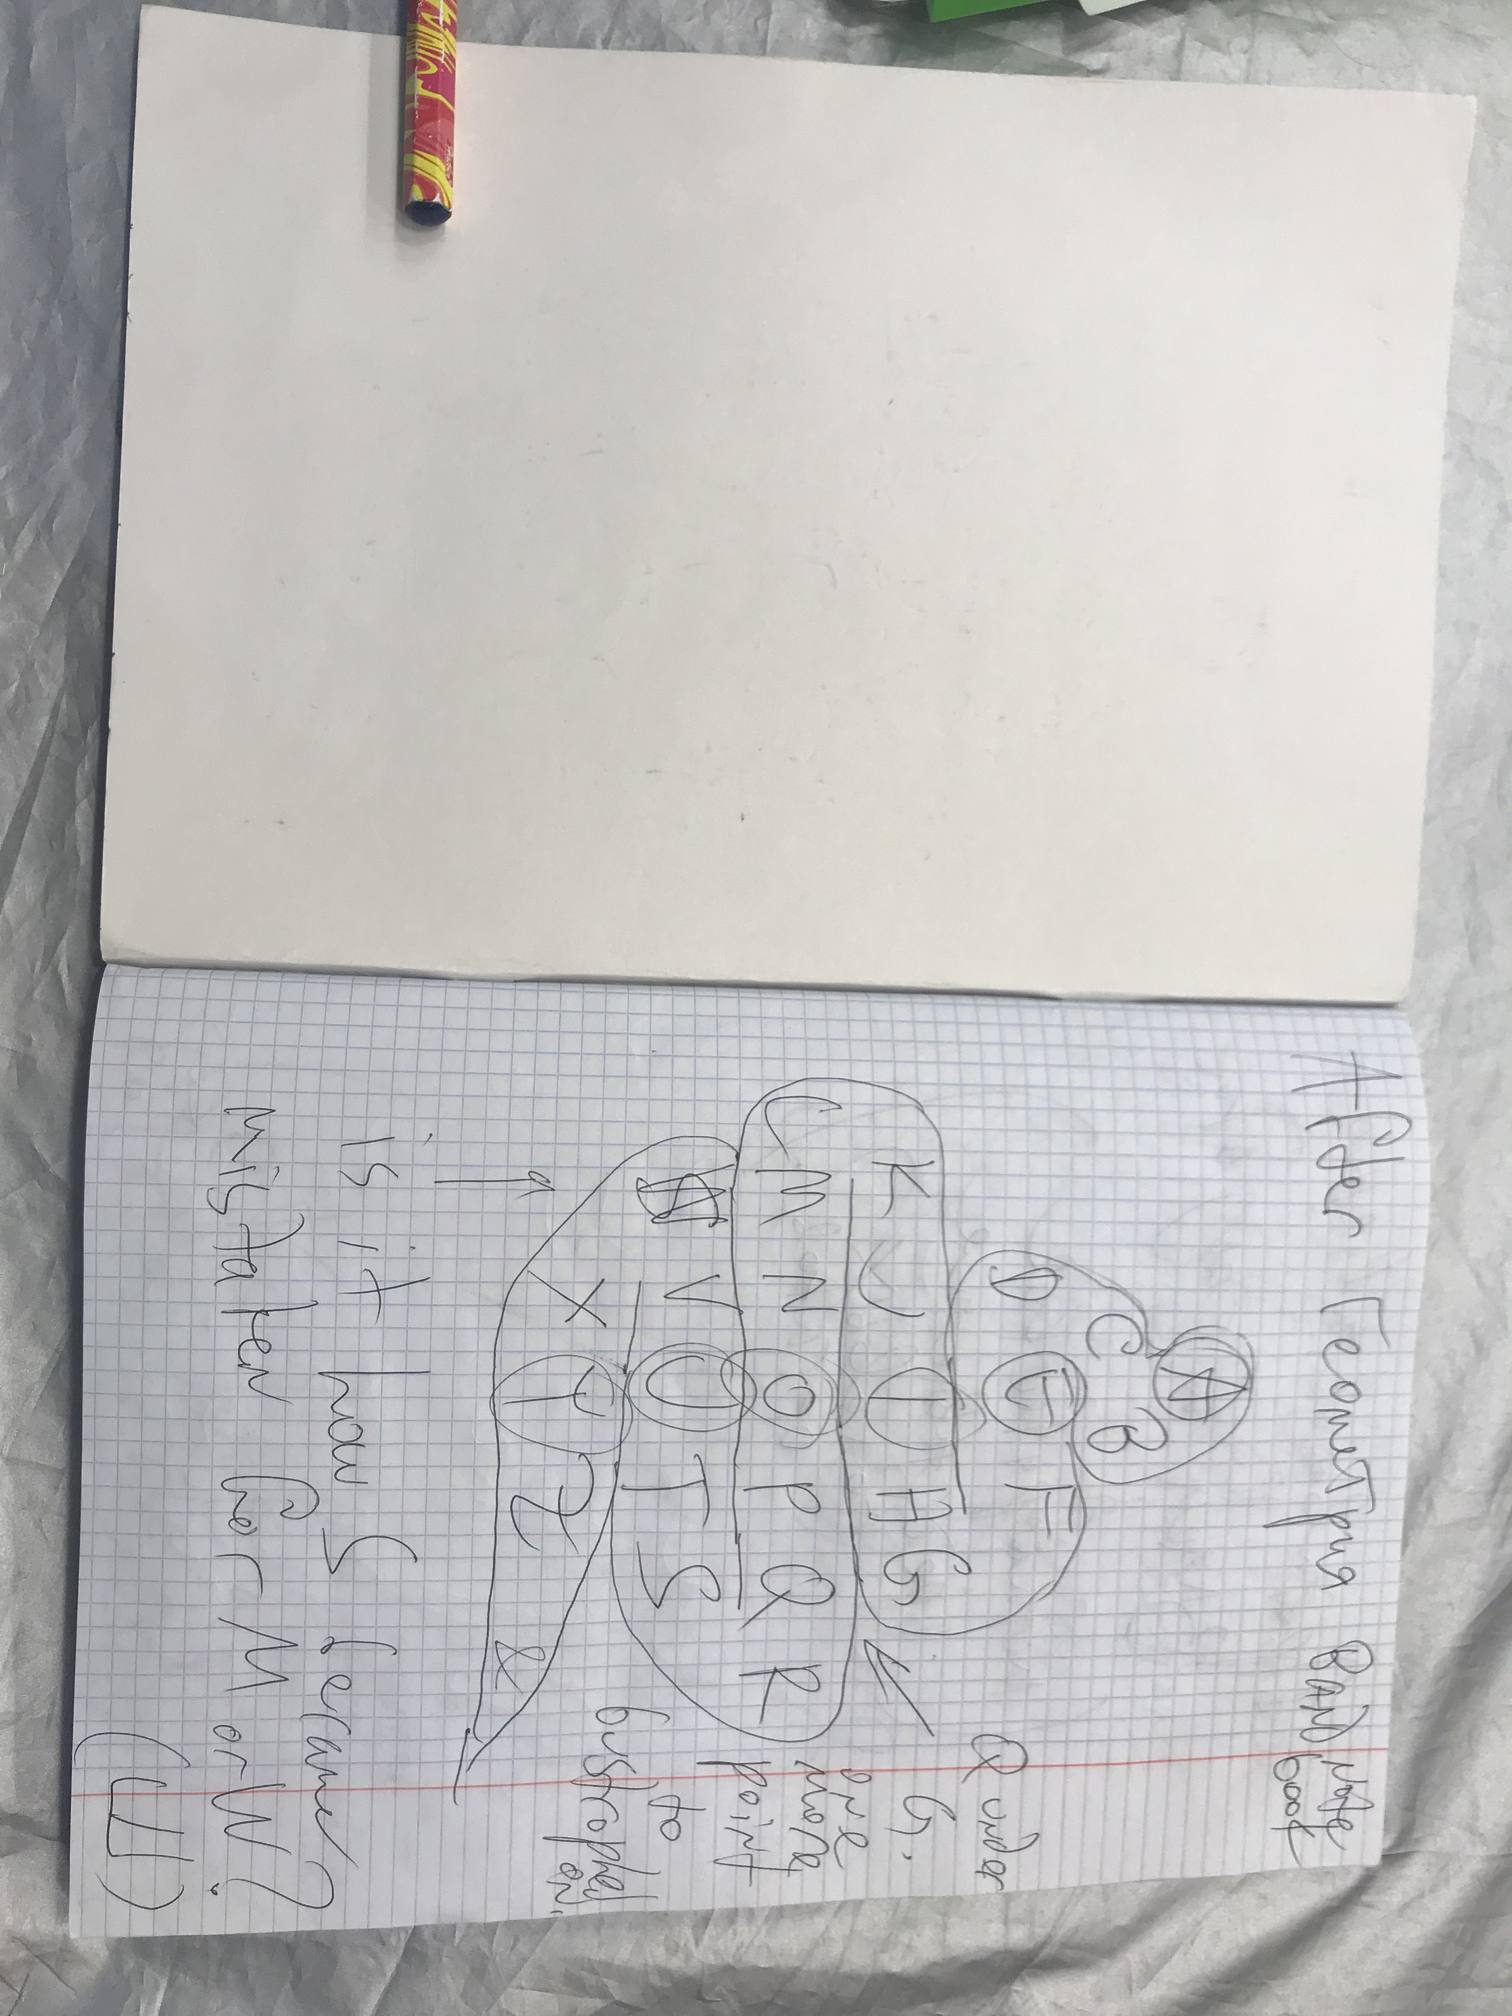 After Геометрия BAND note
book
A
C B
D E F
K J I H G
L M N O P Q R
W V U T S
X Y Z &
Q under
G.
one
more
point
to
bustrophed
on.
is it how S became
mistaken for M or W?